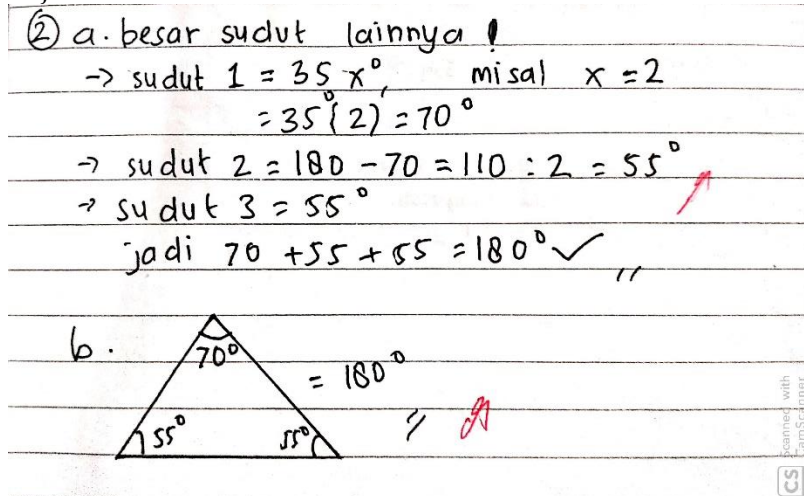 ② a. besar sudut lainnya !
→ sudut 1 = 35 x°, misal x = 2
= 35°(2) = 70°
→ sudut 2 = 180 - 70 = 110 : 2 = 55°
→ sudut 3 = 55°
jadi 70 + 55 + 55 = 180° ✓ //
b.
70°
= 180°
//
55° 55°
Scanned with
CamScanner
CS